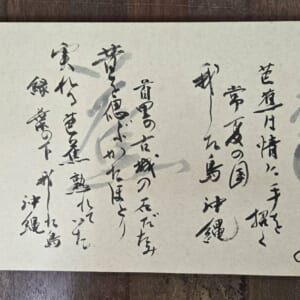 芭蕉は情に手を招く
常夏の国
我した島 沖縄
首里の古城の石だたみ
昔を偲ぶかたほとり
実れる芭蕉 熟れていた
緑葉の下 我した島 沖縄